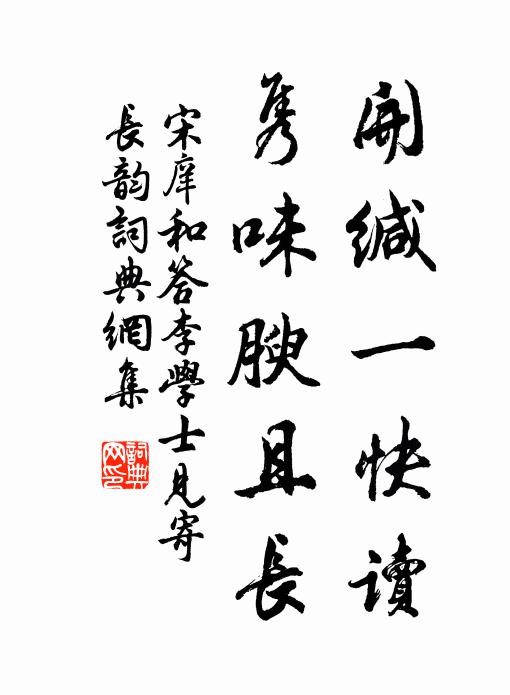 開緘一快讀
雋味腴且長
宋庠和答李學士見寄
長韵詞典網集
詞典
网印